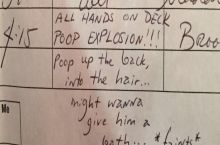 ALL HANDS ON DECK
4:15 POOP EXPLOSION!!! Broo
Poop up the back,
into the hair...
Me
might wanna
give him a
bath... *faints*